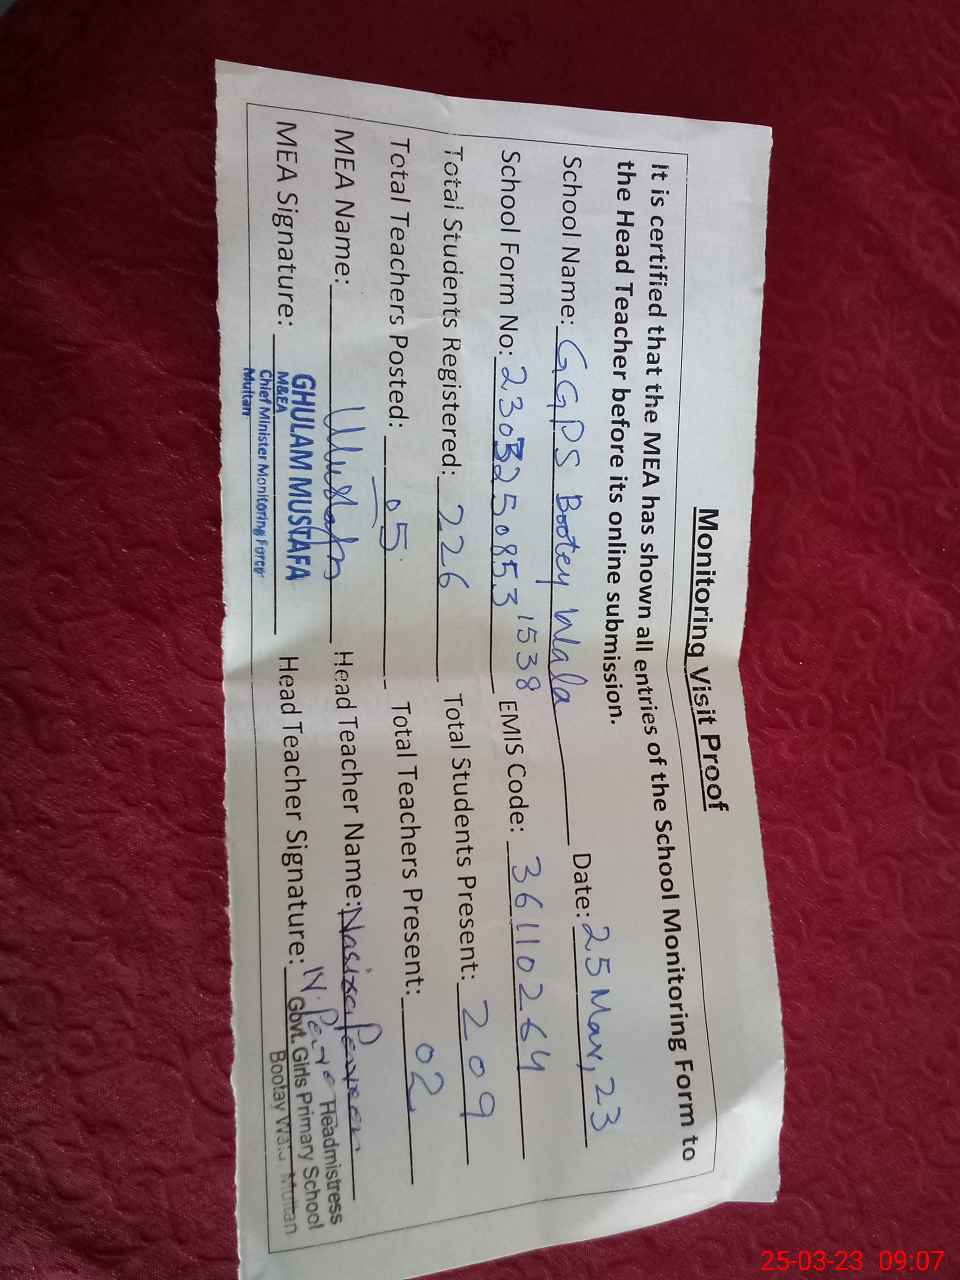 Monitoring Visit Proof
It is certified that the MEA has shown all entries of the School Monitoring Form to
the Head Teacher before its online submission.
School Name: GGPS Bootey Wala Date: 25 Mar, 23
School Form No: 23032508531538 EMIS Code: 36110264
Total Students Registered: 226 Total Students Present: 209
Total Teachers Posted: 05 Total Teachers Present: 02
MEA Name: Mustafa Head Teacher Name: Nasira Parveen
MEA Signature: Head Teacher Signature: N. Parve
GHULAM MUSTAFA
M&EA
Chief Minister Monitoring Force
Multan
Headmistress
Govt. Girls Primary School
Bootay Wala Multan
25-03-23 09:07